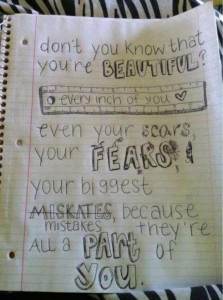 don't you know that
you're BEAUTIFUL?
every inch of you ♡
even your scars,
your FEARS,
your biggest
MISKATES, because
mistakes they're
ALL a PART of
YOU.